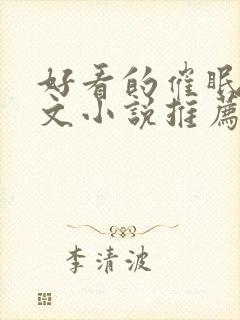 好看的催眠
文小説推薦
李清波